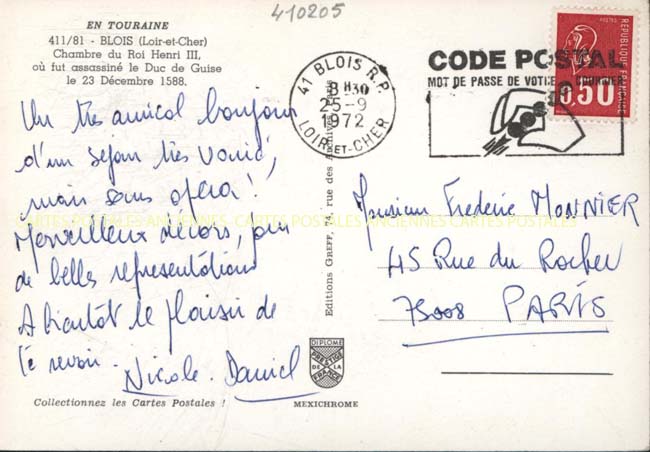 410205
EN TOURAINE
411/81 - BLOIS (Loir-et-Cher)
Chambre du Roi Henri III,
où fut assassiné le Duc de Guise
le 23 Décembre 1588.
Un très amical bonjour
d'un séjour très varié,
mais sans opéra!
Merveilleux décors, pour
de belles représentations
A bientôt le plaisir de
te revoir.
Nicole. Daniel
Collectionnez les Cartes Postales !
Editions GREFF, 74, rue des
DIPLOME
PRESTIGE
DE LA
FRANCE
MEXICHROME
41 BLOIS R.P.
8 H30
25-9
1972
LOIR-ET-CHER
CODE POSTAL
MOT DE PASSE DE VOTRE COURRIER
REPUBLIQUE FRANÇAISE
POSTES
0,50
Monsieur Frédéric MONNIER
45 Rue du Rocher
75008 PARIS
CARTES POSTALES ANCIENNES CARTES POSTALES ANCIENNES CARTES POSTALES